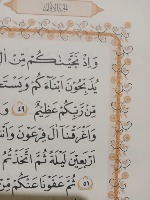 الجزء الأول
وَإِذْ نَجَّيْنَٰكُم مِّنْ ءَالِ
يُذَبِّحُونَ أَبْنَآءَكُمْ وَيَسْتَحْ
مِّن رَّبِّكُمْ عَظِيمٌ ٤٩ وَ
وَأَغْرَقْنَآ ءَالَ فِرْعَوْنَ وَأَنتُ
أَرْبَعِينَ لَيْلَةً ثُمَّ ٱتَّخَذْتُمُ
٥١ ثُمَّ عَفَوْنَا عَنكُم مِّنۢ